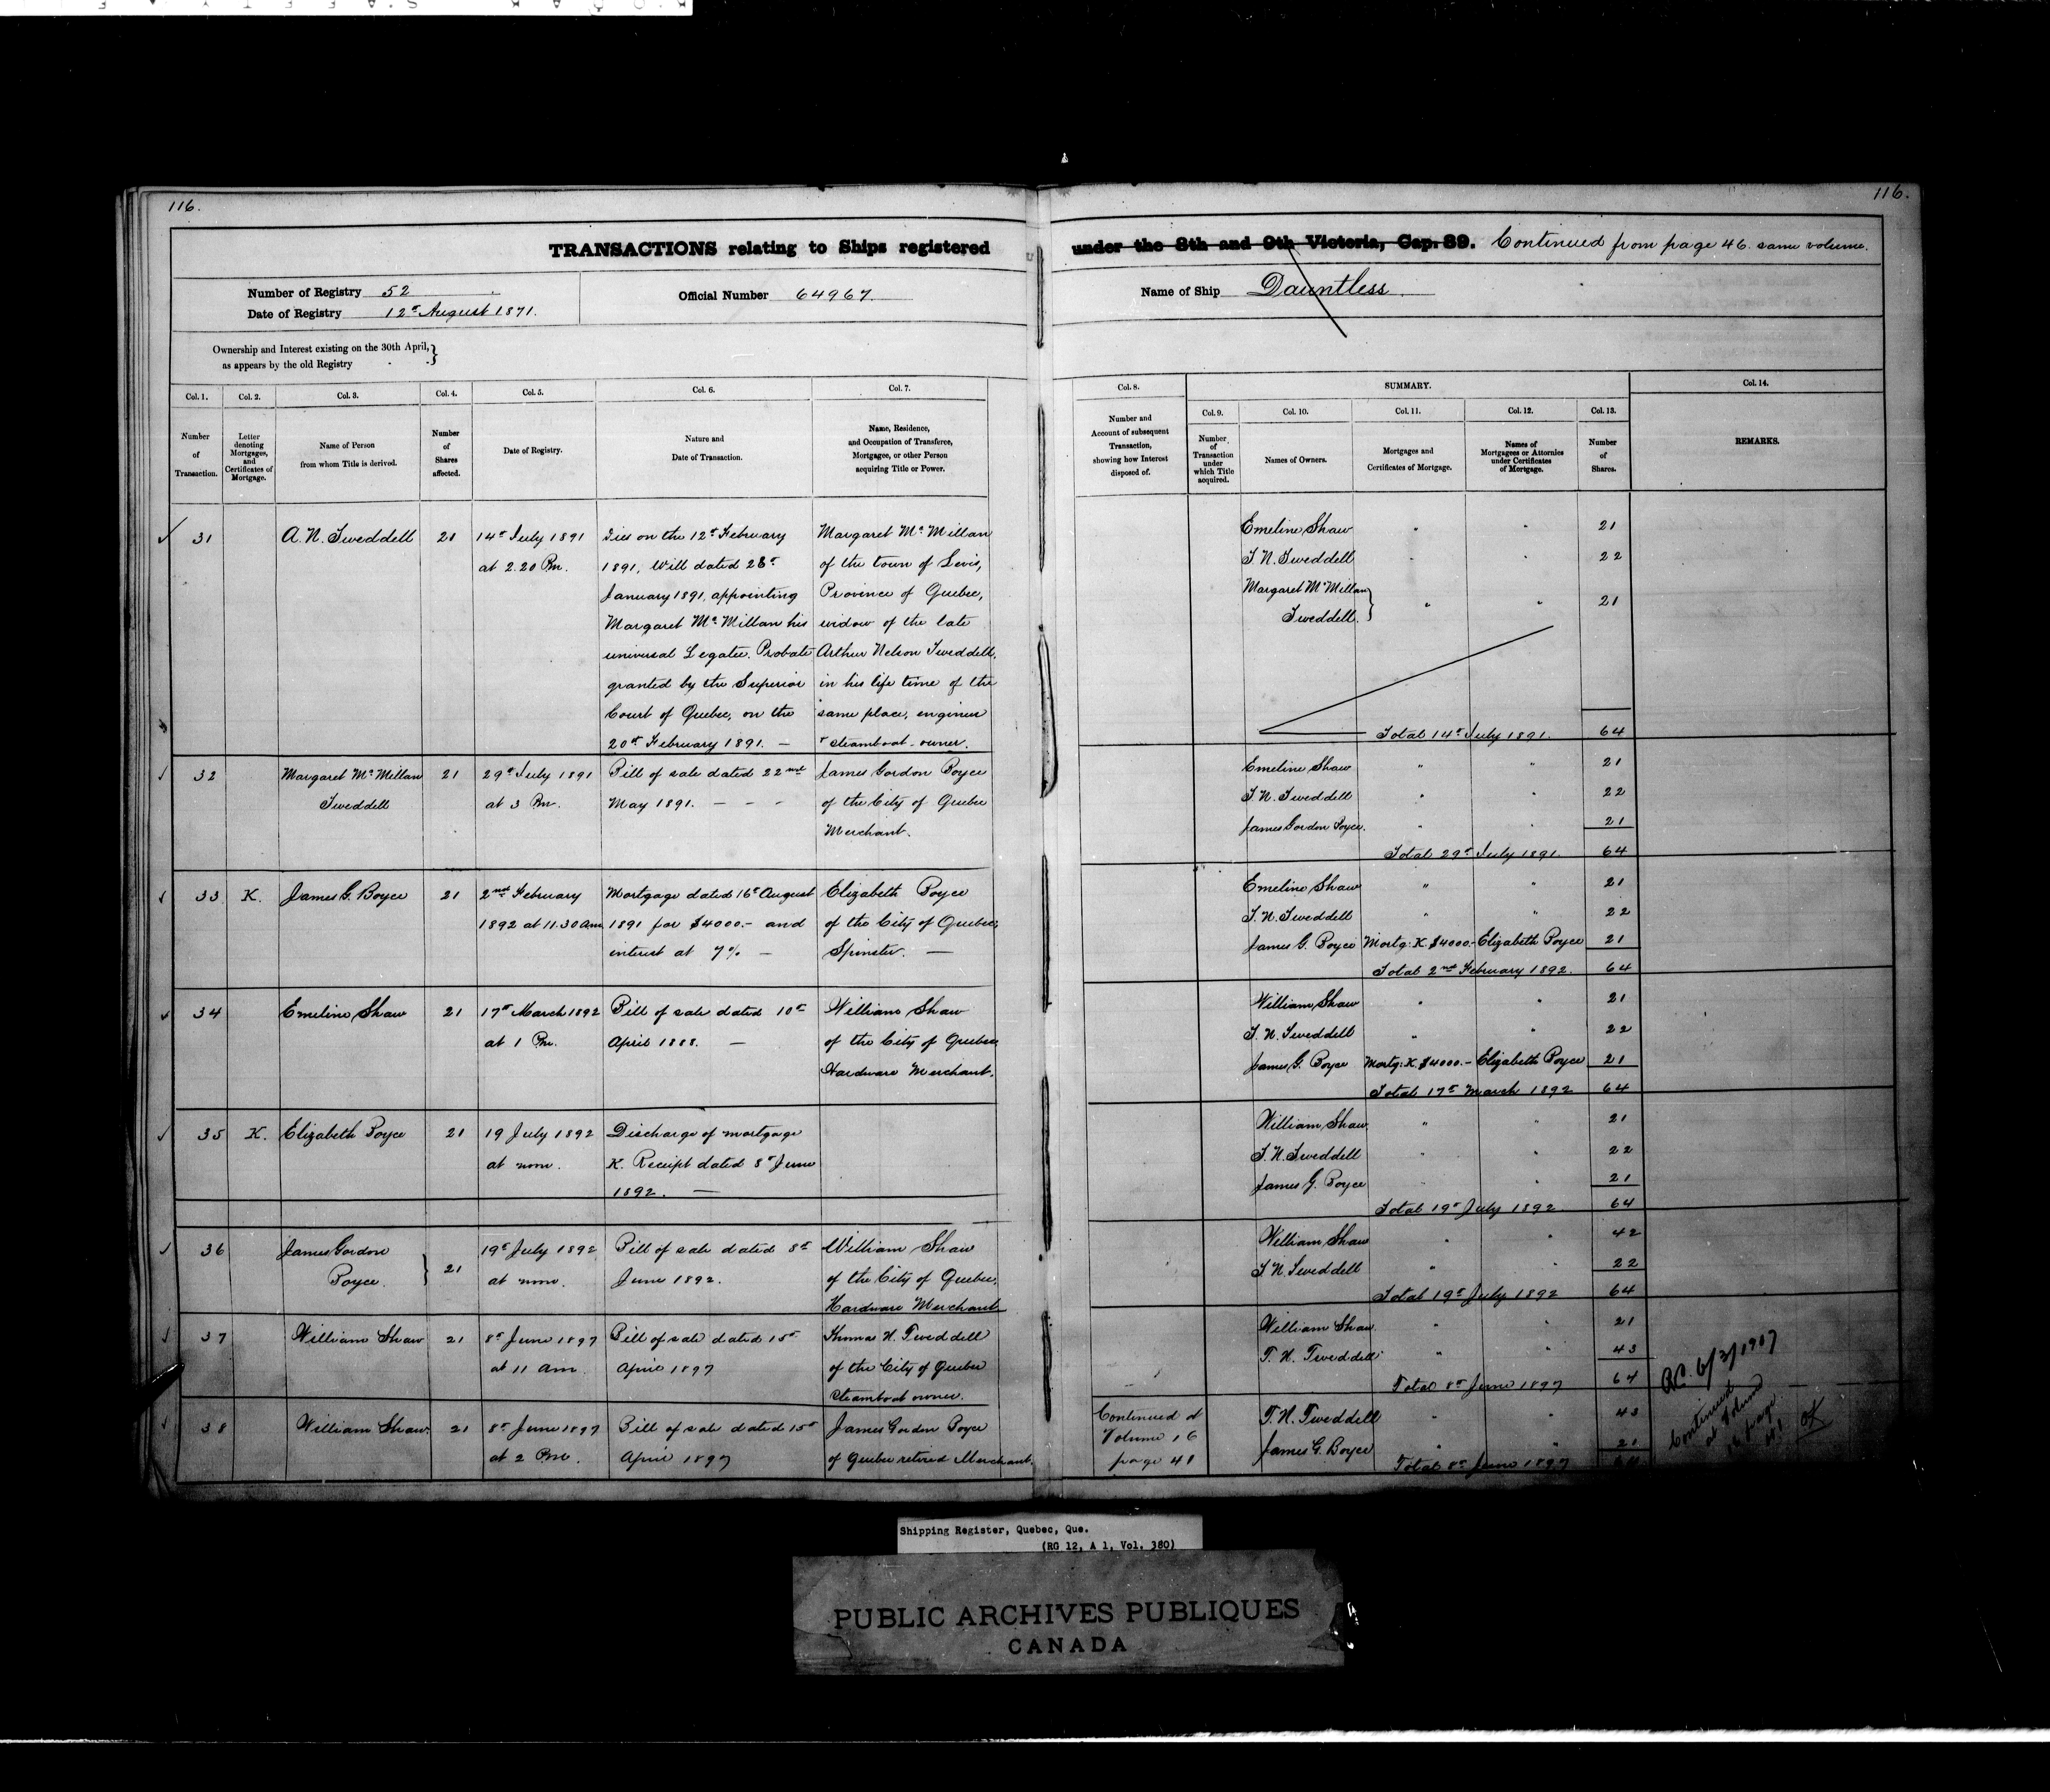 116.
116.
TRANSACTIONS relating to Ships registered under the 8th and 9th Victoria, Cap. 89. Continued from page 46 same volume.
Number of Registry 52
Date of Registry 12th August 1871.
Official Number 64967.
Name of Ship Dauntless.
Ownership and Interest existing on the 30th April,
as appears by the old Registry
Col. 1.
Col. 2.
Col. 3.
Col. 4.
Col. 5.
Col. 6.
Col. 7.
Number
of
Transaction.
Letter
denoting
Mortgages,
and
Certificates of
Mortgage.
Name of Person
from whom Title is derived.
Number
of
Shares
affected.
Date of Registry.
Nature and
Date of Transaction.
Name, Residence,
and Occupation of Transferee,
Mortgagee, or other Person
acquiring Title or Power.
31 A. N. Tweddell 21 14th July 1891 Dies on the 12th February Margaret Mc Millan
at 2.20 Pm. 1891, Will dated 28th of the town of Levis,
January 1891, appointing Province of Quebec,
Margaret Mc Millan his widow of the late
universal Legatee. Probate Arthur Nelson Tweddell,
granted by the Superior in his life time of the
Court of Quebec, on the same place, engineer
20th February 1891. — & steamboat-owner.
32 Margaret Mc Millan 21 29th July 1891 Bill of sale dated 22nd James Gordon Boyce
Tweddell at 3 Pm. May 1891. - - - of the City of Quebec
Merchant.
33 K. James G. Boyce 21 2nd February Mortgage dated 16th August Elizabeth Boyce
1892 at 11.30 am. 1891 for $4000.- and of the City of Quebec,
interest at 7% — Spinster. —
34 Emeline Shaw 21 17th March 1892 Bill of sale dated 10th William Shaw
at 1 Pm. April 1888. — of the City of Quebec
Hardware Merchant.
35 K. Elizabeth Boyce 21 19 July 1892 Discharge of mortgage
at noon. K. Receipt dated 8th June
1892. —
36 James Gordon 21 19th July 1892 Bill of sale dated 8th William Shaw
Boyce. at noon. June 1892. of the City of Quebec,
Hardware Merchant
37 William Shaw 21 8th June 1897 Bill of sale dated 15th Thomas N. Tweddell
at 11 am. April 1897 of the City of Quebec
Steamboat owner.
38 William Shaw. 21 8th June 1897 Bill of sale dated 15th James Gordon Boyce
at 2 Pm. April 1897 of Quebec retired Merchant
Col. 8.
SUMMARY.
Col. 14.
Col. 9.
Col. 10.
Col. 11.
Col. 12.
Col. 13.
Number and
Account of subsequent
Transaction,
showing how Interest
disposed of.
Number
of
Transaction
under
which Title
acquired.
Names of Owners.
Mortgages and
Certificates of Mortgage.
Names of
Mortgagees or Attornies
under Certificates
of Mortgage.
Number
of
Shares.
REMARKS.
Emeline Shaw " " 21
T. N. Tweddell " " 22
Margaret Mc Millan
Tweddell. " " 21
Total 14th July 1891. 64
Emeline Shaw " " 21
T. N. Tweddell " " 22
James Gordon Boyce. " " 21
Total 29th July 1891. 64
Emeline Shaw " " 21
T. N. Tweddell " " 22
James G. Boyce Mortg: K. $4000.- Elizabeth Boyce 21
Total 2nd February 1892. 64
William Shaw " " 21
T. N. Tweddell " " 22
James G. Boyce Mortg: K. $4000.- Elizabeth Boyce 21
Total 17th March 1892 64
William Shaw " " 21
T. N. Tweddell " " 22
James G. Boyce " " 21
Total 19th July 1892 64
William Shaw " " 42
T. N. Tweddell " " 22
Total 19th July 1892 64
William Shaw. " " 21
T. N. Tweddell " " 43
Total 8th June 1897 64
Continued at
Volume 16
page 41
T. N. Tweddell " " 43
James G. Boyce " " 21
Total 8th June 1897 64
6/3/1907
Continued
at Volume
16 page
41
OK
Shipping Register, Quebec, Que.
(RG 12, A 1, Vol. 380)
PUBLIC ARCHIVES PUBLIQUES
CANADA